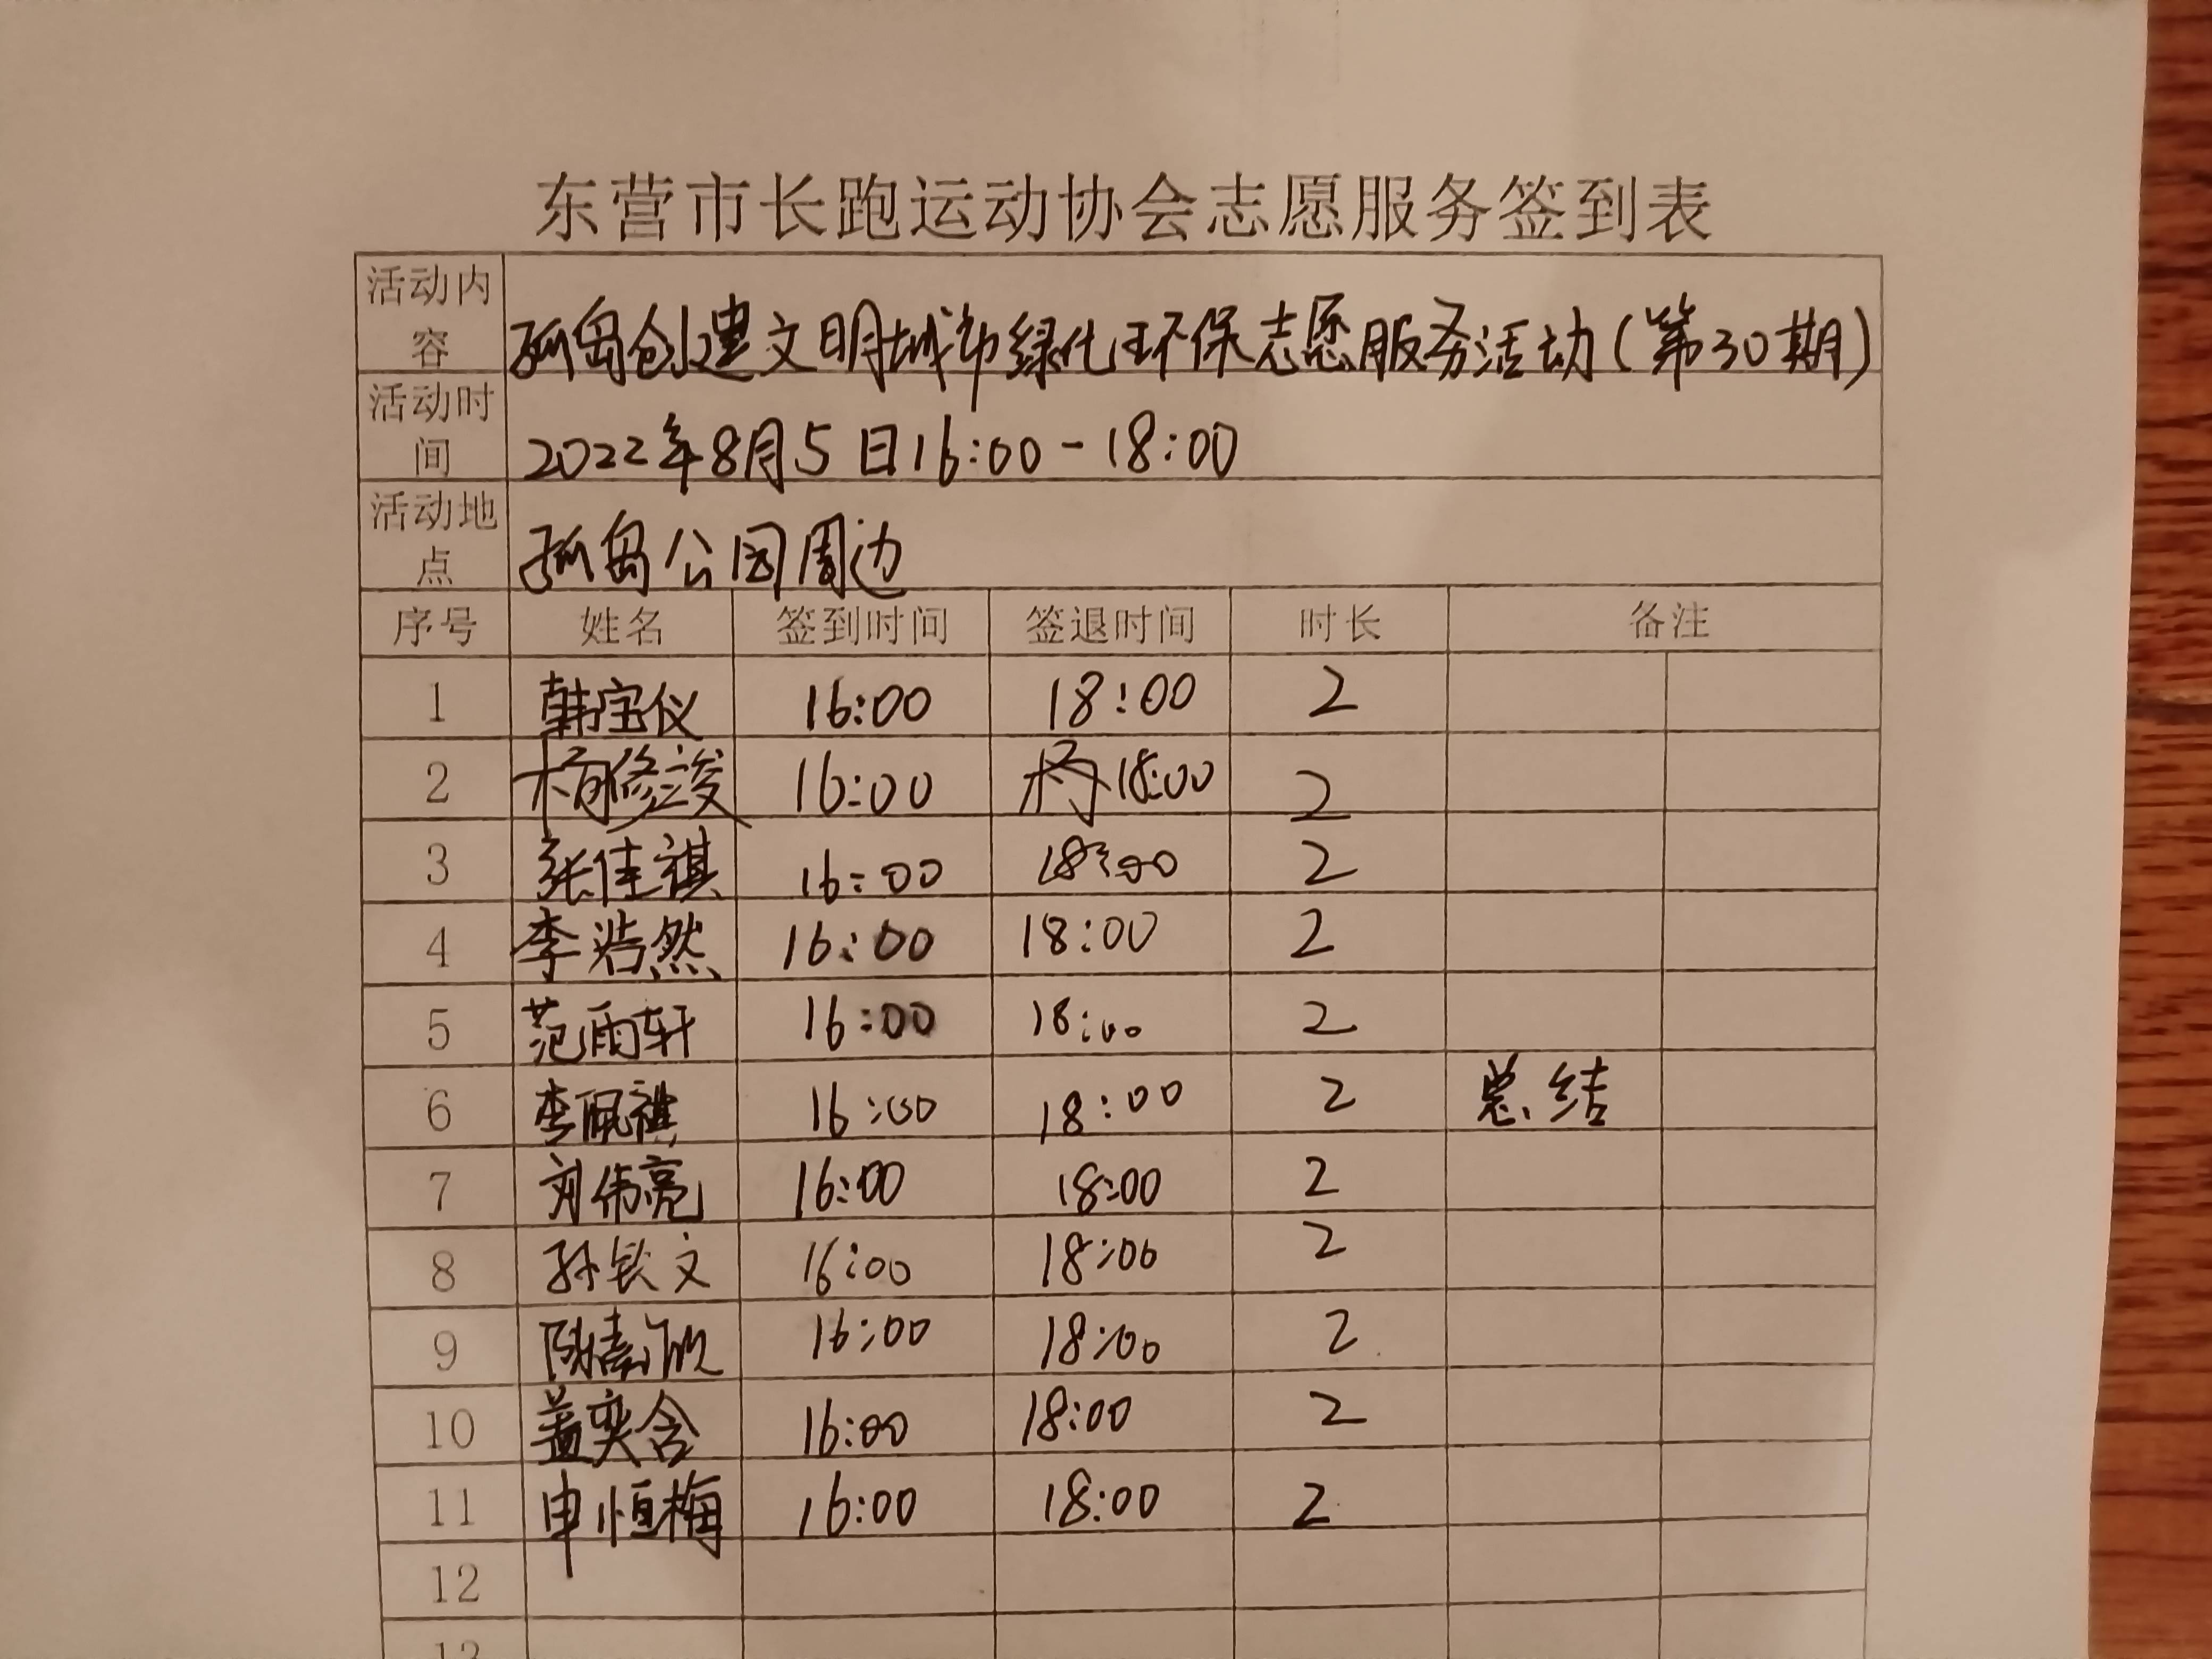 东营市长跑运动协会志愿服务签到表
活动内容 孤岛创建文明城市绿化环保志愿服务活动(第30期)
活动时间 2022年8月5日16:00-18:00
活动地点 孤岛公园周边
序号 姓名 签到时间 签退时间 时长 备注
1 韩宝仪 16:00 18:00 2
2 16:00 18:00 2
3 张佳祺 16:00 18:00 2
4 李浩然 16:00 18:00 2
5 范雨轩 16:00 18:00 2
6 李佩祺 16:00 18:00 2 总结
7 刘伟亮 16:00 18:00 2
8 孙钦文 16:00 18:00 2
9 16:00 18:00 2
10 盖奕含 16:00 18:00 2
11 申恒梅 16:00 18:00 2
12
13